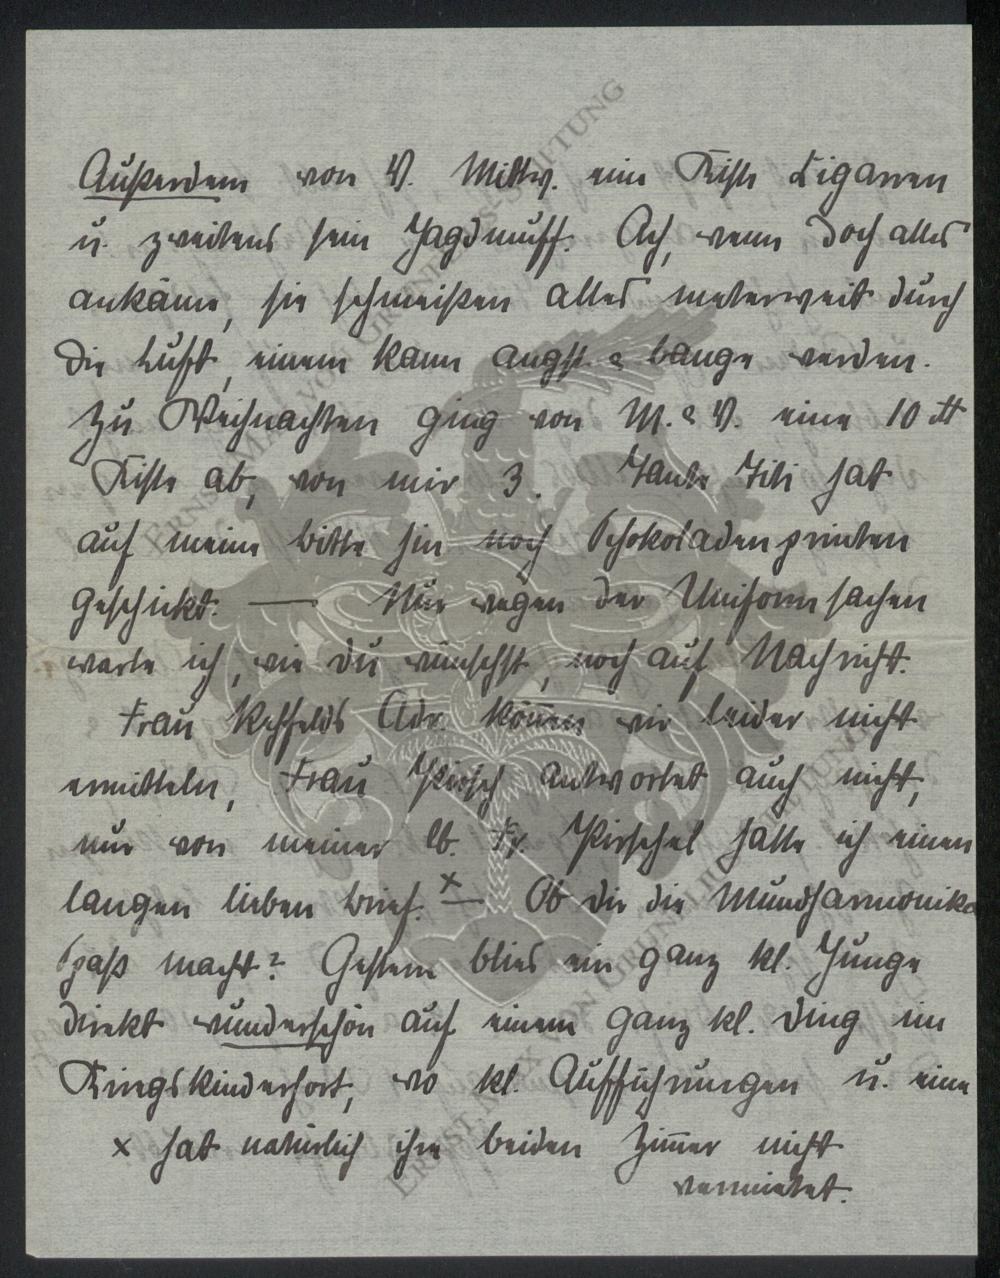 Außerdem von V. Mittw. eine Kiste Zigarren
u. zweitens sein Jagdmuff. Ach, wenn doch alles
ankäme, sie schmeißen alles meterweit durch
die Luft, einem kann angst & bange werden.
Zu Weihnachten ging von M. & V. eine 10 ℔
Kiste ab, von mir 3. Tante Titi hat
auf meine Bitte hin noch Schokoladenprinten
geschickt. — Nur wegen der Uniformsachen
warte ich, wie du wünschst, noch auf Nachricht.
Frau Adr. können wir leider nicht
ermitteln, Frau antwortet auch nicht,
nur von meiner lb. Fr. hatte ich einen
langen lieben Brief. x — Ob dir die Mundharmonika
Spaß macht? Gestern blies ein ganz kl. Junge
direkt wunderschön auf einem ganz kl. Ding im
Kriegskinderhort, wo kl. Aufführungen u. eine
x hat natürlich ihre beiden Zimmer nicht
vermietet.
ERNST MAX VON GRUNELIUS-STIFTUNG
ERNST MAX VON GRUNELIUS-STIFTUNG